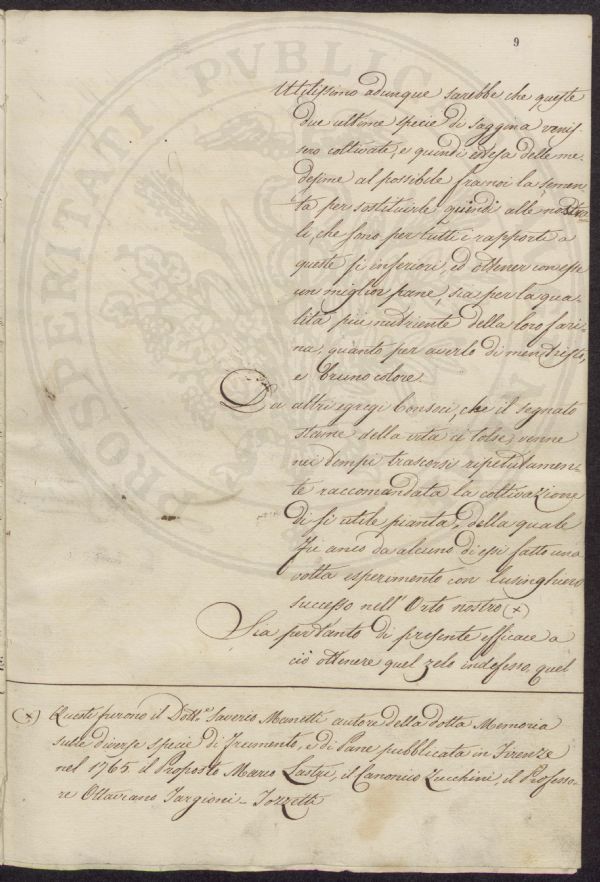 9
Utilissimo adunque sarebbe che queste
due ultime specie di saggina venis=
sero coltivate, e quindi estesa delle me=
desime al possibile fra noi la semen=
ta per sostituirle quindi alle nostra=
li, che sono per tutti i rapporti a
queste sì inferiori, ed ottener con esse
un miglior pane, sia per la qua=
lità più nutriente della loro fari=
na, quanto per averlo di men tristo,
e bruno colore.
Da altri egregi Consoci, che il segnato
stame della vita ci tolse, venne
nei tempi trascorsi ripetutamen=
te raccomandata la coltivazione
di sì utile pianta, della quale
fu anco da alcuno di essi fatto una
volta esperimento con lusinghiero
successo nell' Orto nostro (x)
Sia pertanto di presente efficace a
ciò ottenere quel zelo indefesso, quel
(x) Questi furono il Dott.e Saverio Manetti autore della dotta Memoria
sulle diverse specie di Frumento, e di Pane pubblicata in Firenze
nel 1765. il Proposto Marco Lastri, il Canonico Zucchini, il Professo=
re Ottaviano Targioni-Tozzetti
PROSPERITATI PVBLICAE